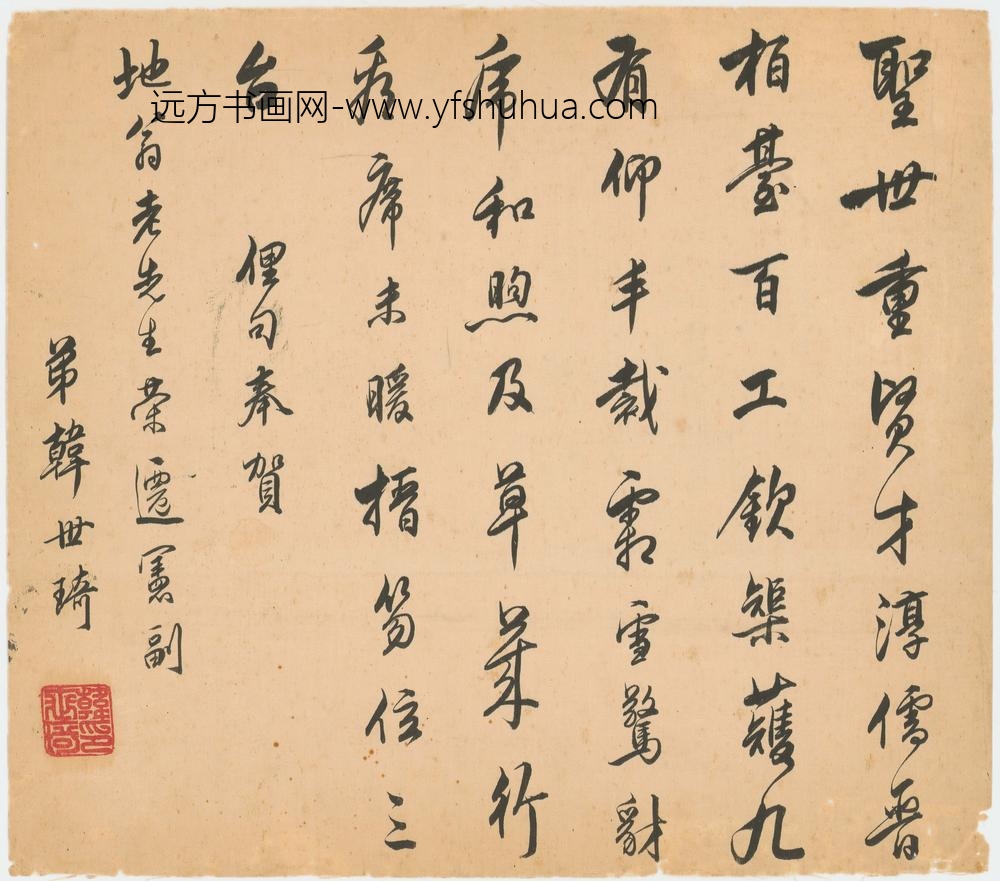 聖世重賢才淳儒晋
柏臺百工欽榘蒦九
有仰丰裁霜雪驚豺
虎和煦及草萊行
看席未暖搢笏位三
台
俚句奉賀
地翁老先生荣遷憲副
弟韓世琦
远方书画网-www.yfshuhua.com